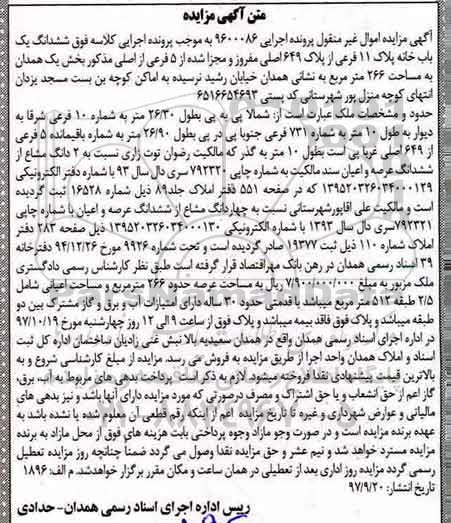 متن آگهی مزایده
آگهی مزایده اموال غیر منقول پرونده اجرایی ۹۶۰۰۰۸۶ به موجب پرونده اجرایی کلاسه فوق ششدانگ یک
باب خانه پلاک ۱۱ فرعی از پلاک ۶۴۹ اصلی مفروز و مجزا شده از ۵ فرعی از اصلی مذکور بخش یک همدان
به مساحت ۲۶۶ متر مربع به نشانی همدان خیابان رشید نرسیده به اماکن کوچه بن بست مسجد یزدان
انتهای کوچه منزل پور شهرستانی کد پستی ۶۵۱۶۶۵۴۶۹۳
حدود و مشخصات ملک عبارت است از: شمالا پی به پی بطول ۲۶/۳۰ متر به شماره ۱۰ فرعی شرقا به
دیوار به طول ۱۰ متر به شماره ۷۳۱ فرعی جنوبا پی در پی بطول ۲۶/۹۰ متر به شماره باقیمانده ۵ فرعی
از ۶۴۹ اصلی غربا پی است بطول ۱۰ متر به گذر که مالکیت رضوان توت زاری نسبت به ۲ دانگ مشاع از
ششدانگ عرصه و اعیان سند مالکیت به شماره چاپی ۷۹۲۳۲۰ سری دال سال ۹۳ با شماره دفتر الکترونیکی
۱۳۹۵۲۰۳۲۶۰۳۴۰۰۰۱۲۹ که در صفحه ۵۵۱ دفتر املاک جلد۸۹ ذیل شماره ۱۶۵۲۸ ثبت گردیده
است و مالکیت علی آقاپورشهرستانی نسبت به چهاردانگ مشاع از ششدانگ عرصه و اعیان با شماره چاپی
۷۹۲۳۲۱سری دال سال ۱۳۹۳ با شماره الکترونیکی ۱۳۹۵۲۰۳۲۶۰۳۴۰۰۰۱۳۰ ذیل صفحه ۲۸۳ دفتر
املاک شماره ۱۱۰ ذیل ثبت ۱۹۳۷۷ صادر گردیده است و تحت شماره ۹۹۲۶ مورخ ۹۴/۱۲/۲۶ دفترخانه
۳۹ اسناد رسمی همدان در رهن بانک مهراقتصاد قرار گرفته است طبق نظر کارشناس رسمی دادگستری
ملک مزبور به مبلغ ۷/۹۰۰/۰۰۰/۰۰۰ ریال به مساحت عرصه حدود ۲۶۶ مترمربع و مساحت اعیانی شامل
۲/۵ طبقه ۵۱۲ متر مربع میباشد با قدمتی حدود ۳۰ ساله دارای امتیازات آب و برق و گاز مشترک بین دو
طبقه میباشد و پلاک فوق فاقد بیمه میباشد و پلاک فوق از ساعت ۹ الی ۱۲ روز چهارشنبه مورخ ۹۷/۱۰/۱۹
در اداره اجرای اسناد رسمی همدان واقع در همدان سعیدیه بالا نبش غنی زادیان ساختمان اداره کل ثبت
اسناد و املاک همدان واحد اجرا از طریق مزایده به فروش می رسد. مزایده از مبلغ کارشناسی شروع و به
بالاترین قیمت پیشنهادی نقدا فروخته میشود. لازم به ذکر است پرداخت بدهی های مربوط به آب، برق،
گاز اعم از حق انشعاب و یا حق اشتراک و مصرف درصورتی که مورد مزایده دارای آنها باشد و نیز بدهی های
مالیاتی و عوارض شهرداری و غیره تا تاریخ مزایده اعم از اینکه رقم قطعی آن معلوم شده یا نشده باشد به
عهده برنده مزایده است و در صورت وجو مازاد وجوه پرداختی بابت هزینه های فوق از محل مازاد به برنده
مزایده مسترد خواهد شد و نیم عشر و حق مزایده نقدا وصول می گردد ضمنا چنانچه روز مزایده تعطیل
رسمی گردد مزایده روز اداری بعد از تعطیلی در همان ساعت و مکان مقرر برگزار خواهدشد. م الف: ۱۸۹۶
تاریخ انتشار: ۹۷/۹/۲۰
رییس اداره اجرای اسناد رسمی همدان- حدادی